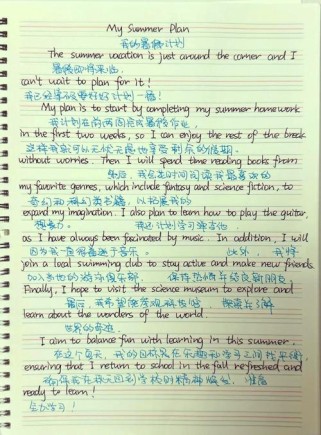 My Summer Plan
我的暑假计划
The summer vacation is just around the corner and I
暑假即将来临
can't wait to plan for it!
我已经等不及要好好计划一番!
My plan is to start by completing my summer homework
我计划在前两周完成暑假作业,
in the first two weeks, so I can enjoy the rest of the break
这样我就可以无忧无虑地享受剩余的假期。
without worries. Then I will spend time reading books from
然后,我会花时间阅读我最喜欢的
my favorite genres, which include fantasy and science fiction, to
奇幻和科幻类书籍,以拓展我的
expand my imagination. I also plan to learn how to play the guitar,
想象力。 我还计划学习弹吉他
as I have always been facinated by music. In addition, I will
因为我一直很着迷于音乐。 此外,我将
join a local swimming club to stay active and make new friends.
加入当地的游泳俱乐部, 保持热情并结交新朋友
Finally, I hope to visit the science museum to explore and
最后,我希望能参观科技馆, 探索并了解
learn about the wonders of the world.
世界的奇迹.
I aim to balance fun with learning in this summer.
在这个夏天,我的目标是在乐趣和学习之间找平衡,
ensuring that I return to school in the fall refreshed and
确保我在秋天回到学校时精神焕发, 准备
ready to learn!
去学习!